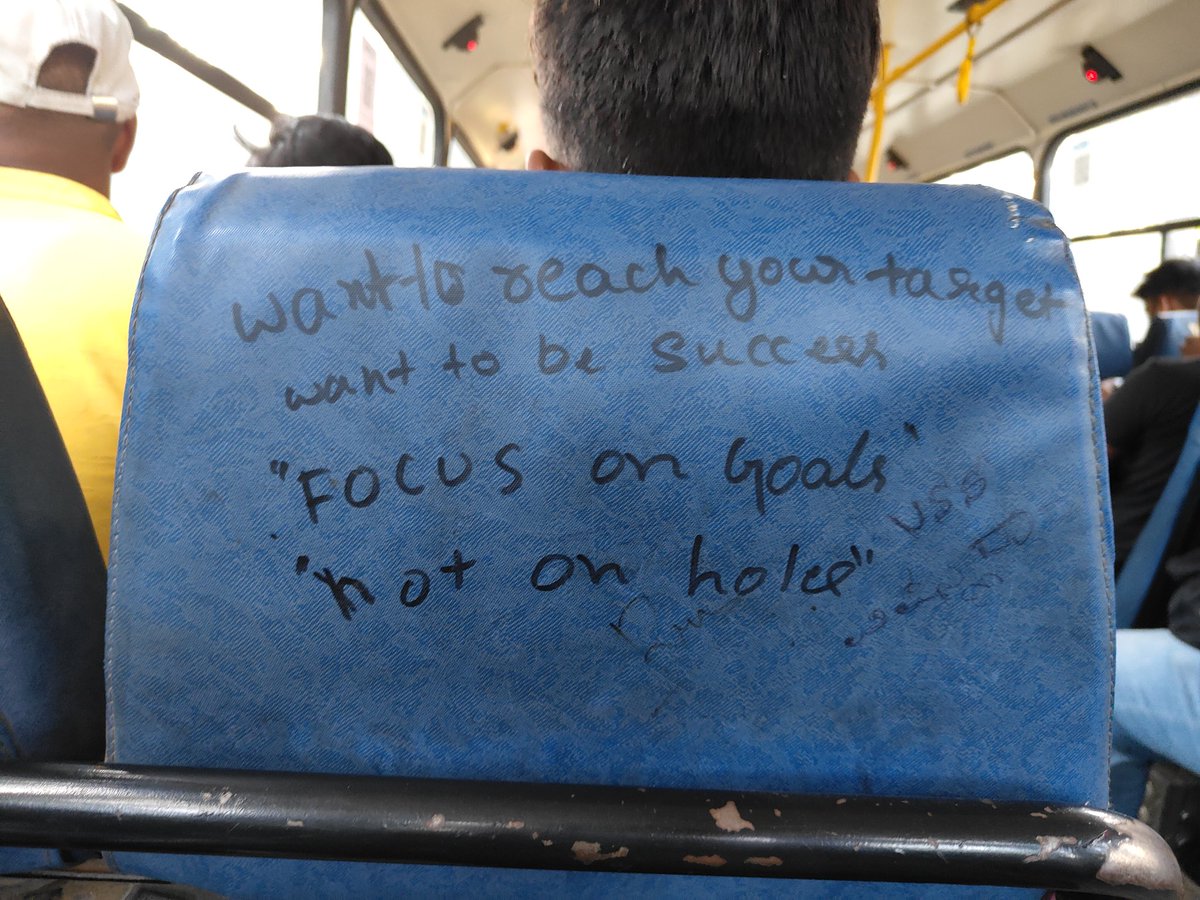 want to reach your target
want to be success
"FOCUS on Goals"
"not on hole"
USS